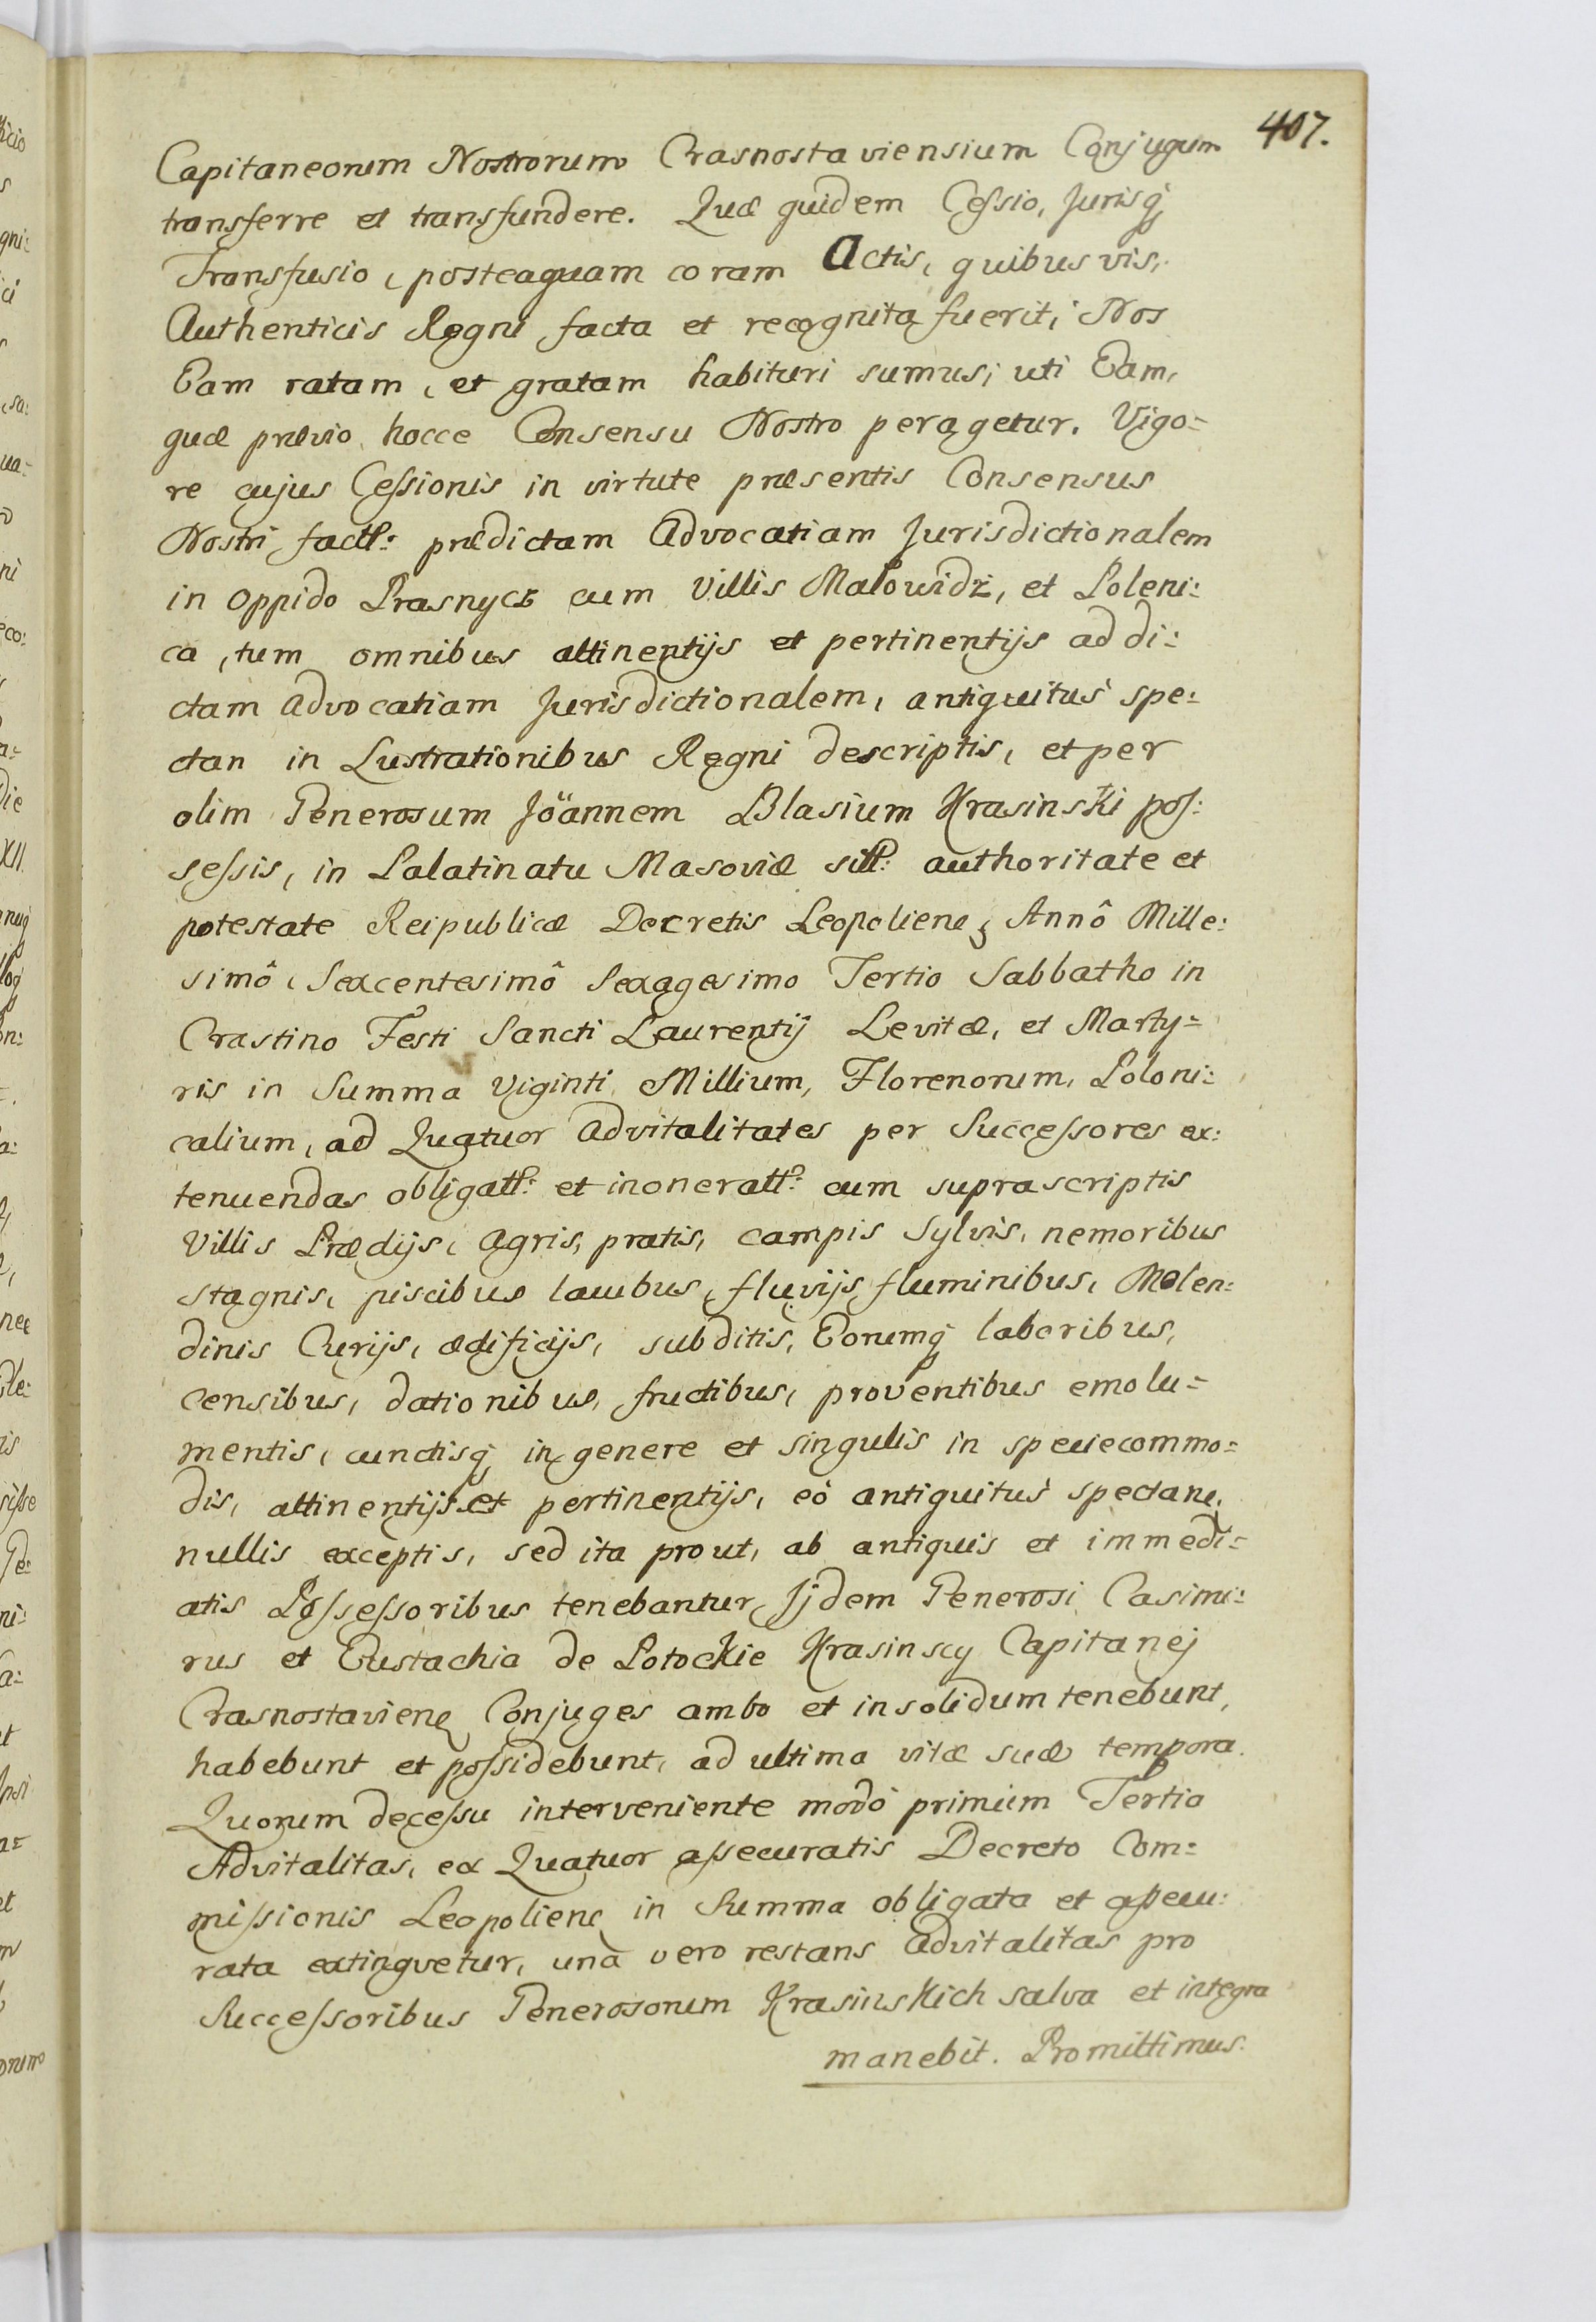 407.
Capitaneorum Nostrorum Crasnostaviensium Conjugum
transferre et transfundere. Quæ quidem Cessio, Jurisq
Transfusio, posteaquam coram Actis, quibusvis,
Authenticis Regni facta et recognita fuerit, Nos
Eam ratam, et gratam habituri sumus, uti Eam,
quæ prævio hocce Consensu Nostro peragetur. Vigo=
re cujus Cessionis in virtute præsentis Consensus
Nostri fact: prædictam Advocatiam Jurisdictionalem
in Oppido Prasnycz cum Villis Małowidz, et Poleni:
ca, tum omnibus attinentijs et pertinentijs ad di:
ctam Advocatiam Jurisdictionalem, antiquitus spe:
ctan in Lustrationibus Regni descriptis, et per
olim Generosum Joännem Blasium Krasinski pos:
sessis, in Palatinatu Masoviæ sitt: authoritate et
potestate Reipublicæ Decretis Leopoliens, Annô Mille:
simô, Sexcentesimô Sexagesimo Tertio Sabbatho in
Crastino Festi Sancti Laurentij Levitæ, et Marty=
ris in Summa Viginti Millium, Florenorum, Poloni:
calium, ad Quatuor Advitalitates per Successores ex:
tenuendas obligatt: et inoneratt: cum suprascriptis
Villis Prædijs, Agris, pratis, campis Sylvis, nemoribus
stagnis, piscibus lacubus, fluvijs, fluminibus, Molen:
dinis Curijs, ædificijs, subditis, Eorumq laboribus,
censibus, dationibus, fructibus, proventibus emolu=
mentis, cunctisq in genere et singulis in specie commo=
dis, attinentijs et pertinentijs, eò antiquitus spectan,
nullis exceptis, sed ita prout, ab antiquis et immedi=
atis Possessoribus tenebantur, Ijdem Generosi Casimi:
rus et Eustachia de Potockie Krasinscy Capitanej
Crasnostaviens Conjuges ambo et insolidum tenebunt,
habebunt et possidebunt, ad ultima vitæ suæ tempora.
Quorum decessu interveniente modò primum Tertia
Advitalitas, ex Quatuor assecuratis Decreto Com=
missionis Leopoliens in Summa obligata et assecu:
rata extinguetur, unà vero restans Advitalitas pro
Successoribus Generosorum Krasinskich salva et integra
manebit. Promittimus.